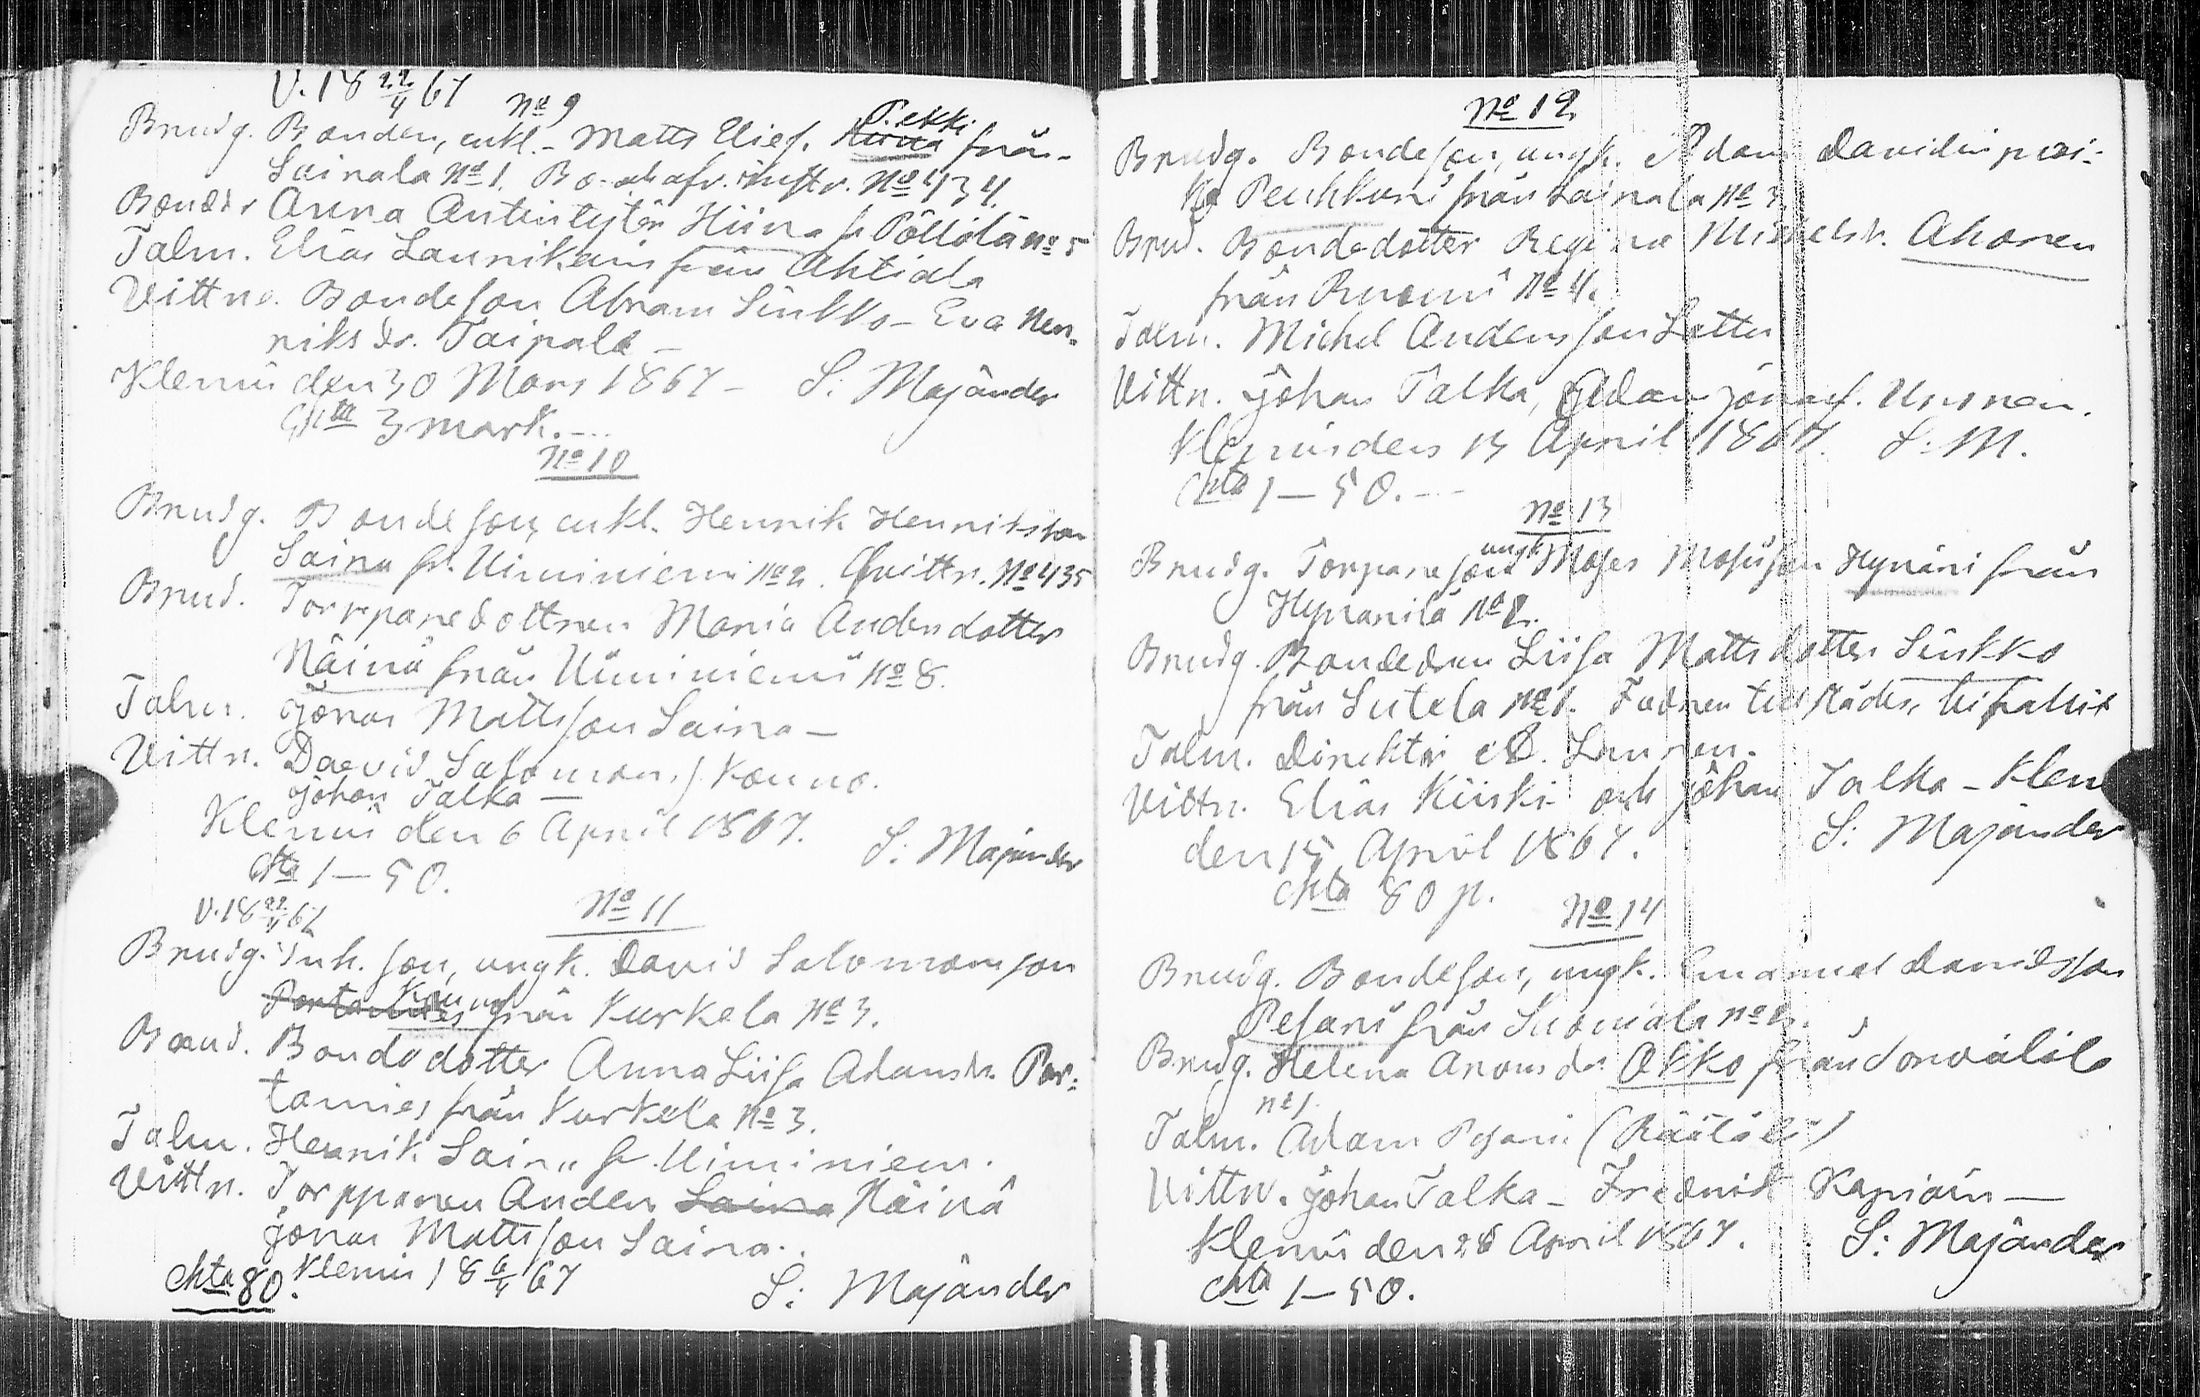 V. 18 22/4 67
No 9
Brudg. Bonden, enkl. - Matts Elief. Pekki från
Sainala No 1. Bo- och afv. instr. No 434.
Brud Anna Antintytär Hiina fr Pöllölä No 5
Talm. Elias Launikain från Ahtiala
Vittne. Bondeson Abram Sinkko - Eva Hen-
riks dr. Taipale -
Klemis den 30 Mars 1867 - S: Majander
3 mark. -
No 10
Brudg. Bondeson, enkl. Henrik Henriksson
Saina fr. Uiminiemi No 2. Qvittn. No 435
Brud. Torpparedottren Maria Andersdotter
Näinä från Uiminiemi No 8.
Talm. Jonas Mattsson Saina -
Vittn. David Salomons. Konno.
Johan Talka -
Klemis den 6 April 1867. S: Majander
Mta 1-50.
V. 18 22/4 67
No 11
Brudg. Inh. son, ungk. David Salomonsson
från Kurkela No 3.
Brud. Bondedotter Anna Liisa Adamsdr. Por-
tamies från Kurkela No 3.
Talm. Henrik Saina fr. Uiminiem.
Vittn. Torpparen Anders Saina Näinä
Jonas Mattsson Saina.
Mta 80. Klemis 18 6/4 67 S: Majander
No 12
Brudg. Bondeson, ungk. Adam Davidinpoi-
ka Peuhkuri från Sainala No 3
Brud. Bondedotter Regina Michelsdr. Ahonen
från Ruomi No 4.
Talm. Michel Andersson Latter
Vittn. Johan Talka, Adam Jonaf. Ursinen.
Klemis den 13 April 1867. S: M.
Mta 1-50. -
No 13
Brudg. Torpareson ungk Moses Mosesson Hynäri från
Hynärilä No 2.
Brudg. Bondedren Liisa Mattsdotter Sinkko
från Sutela No 1. Fadren tillstädes, bifallit
Talm. Direktör Lauren.
Vittn. Elias Kiiski och Johan Talka - Klem
den 15 April 1867. S: Majander
Mta 80 p.
No 14
Brudg. Bondeson, ungk. Emanuel Davidsson
Pesari från Suomala No 2.
Brudg. Helena Aronsdr Akko från Sorvalila
No 1.
Talm. Adam Pesari (Räätäli)
Vittn. Johan Talka - Fredrik Kapiain -
Klemis den 28 April 1867. S: Majander
Mta 1-50.